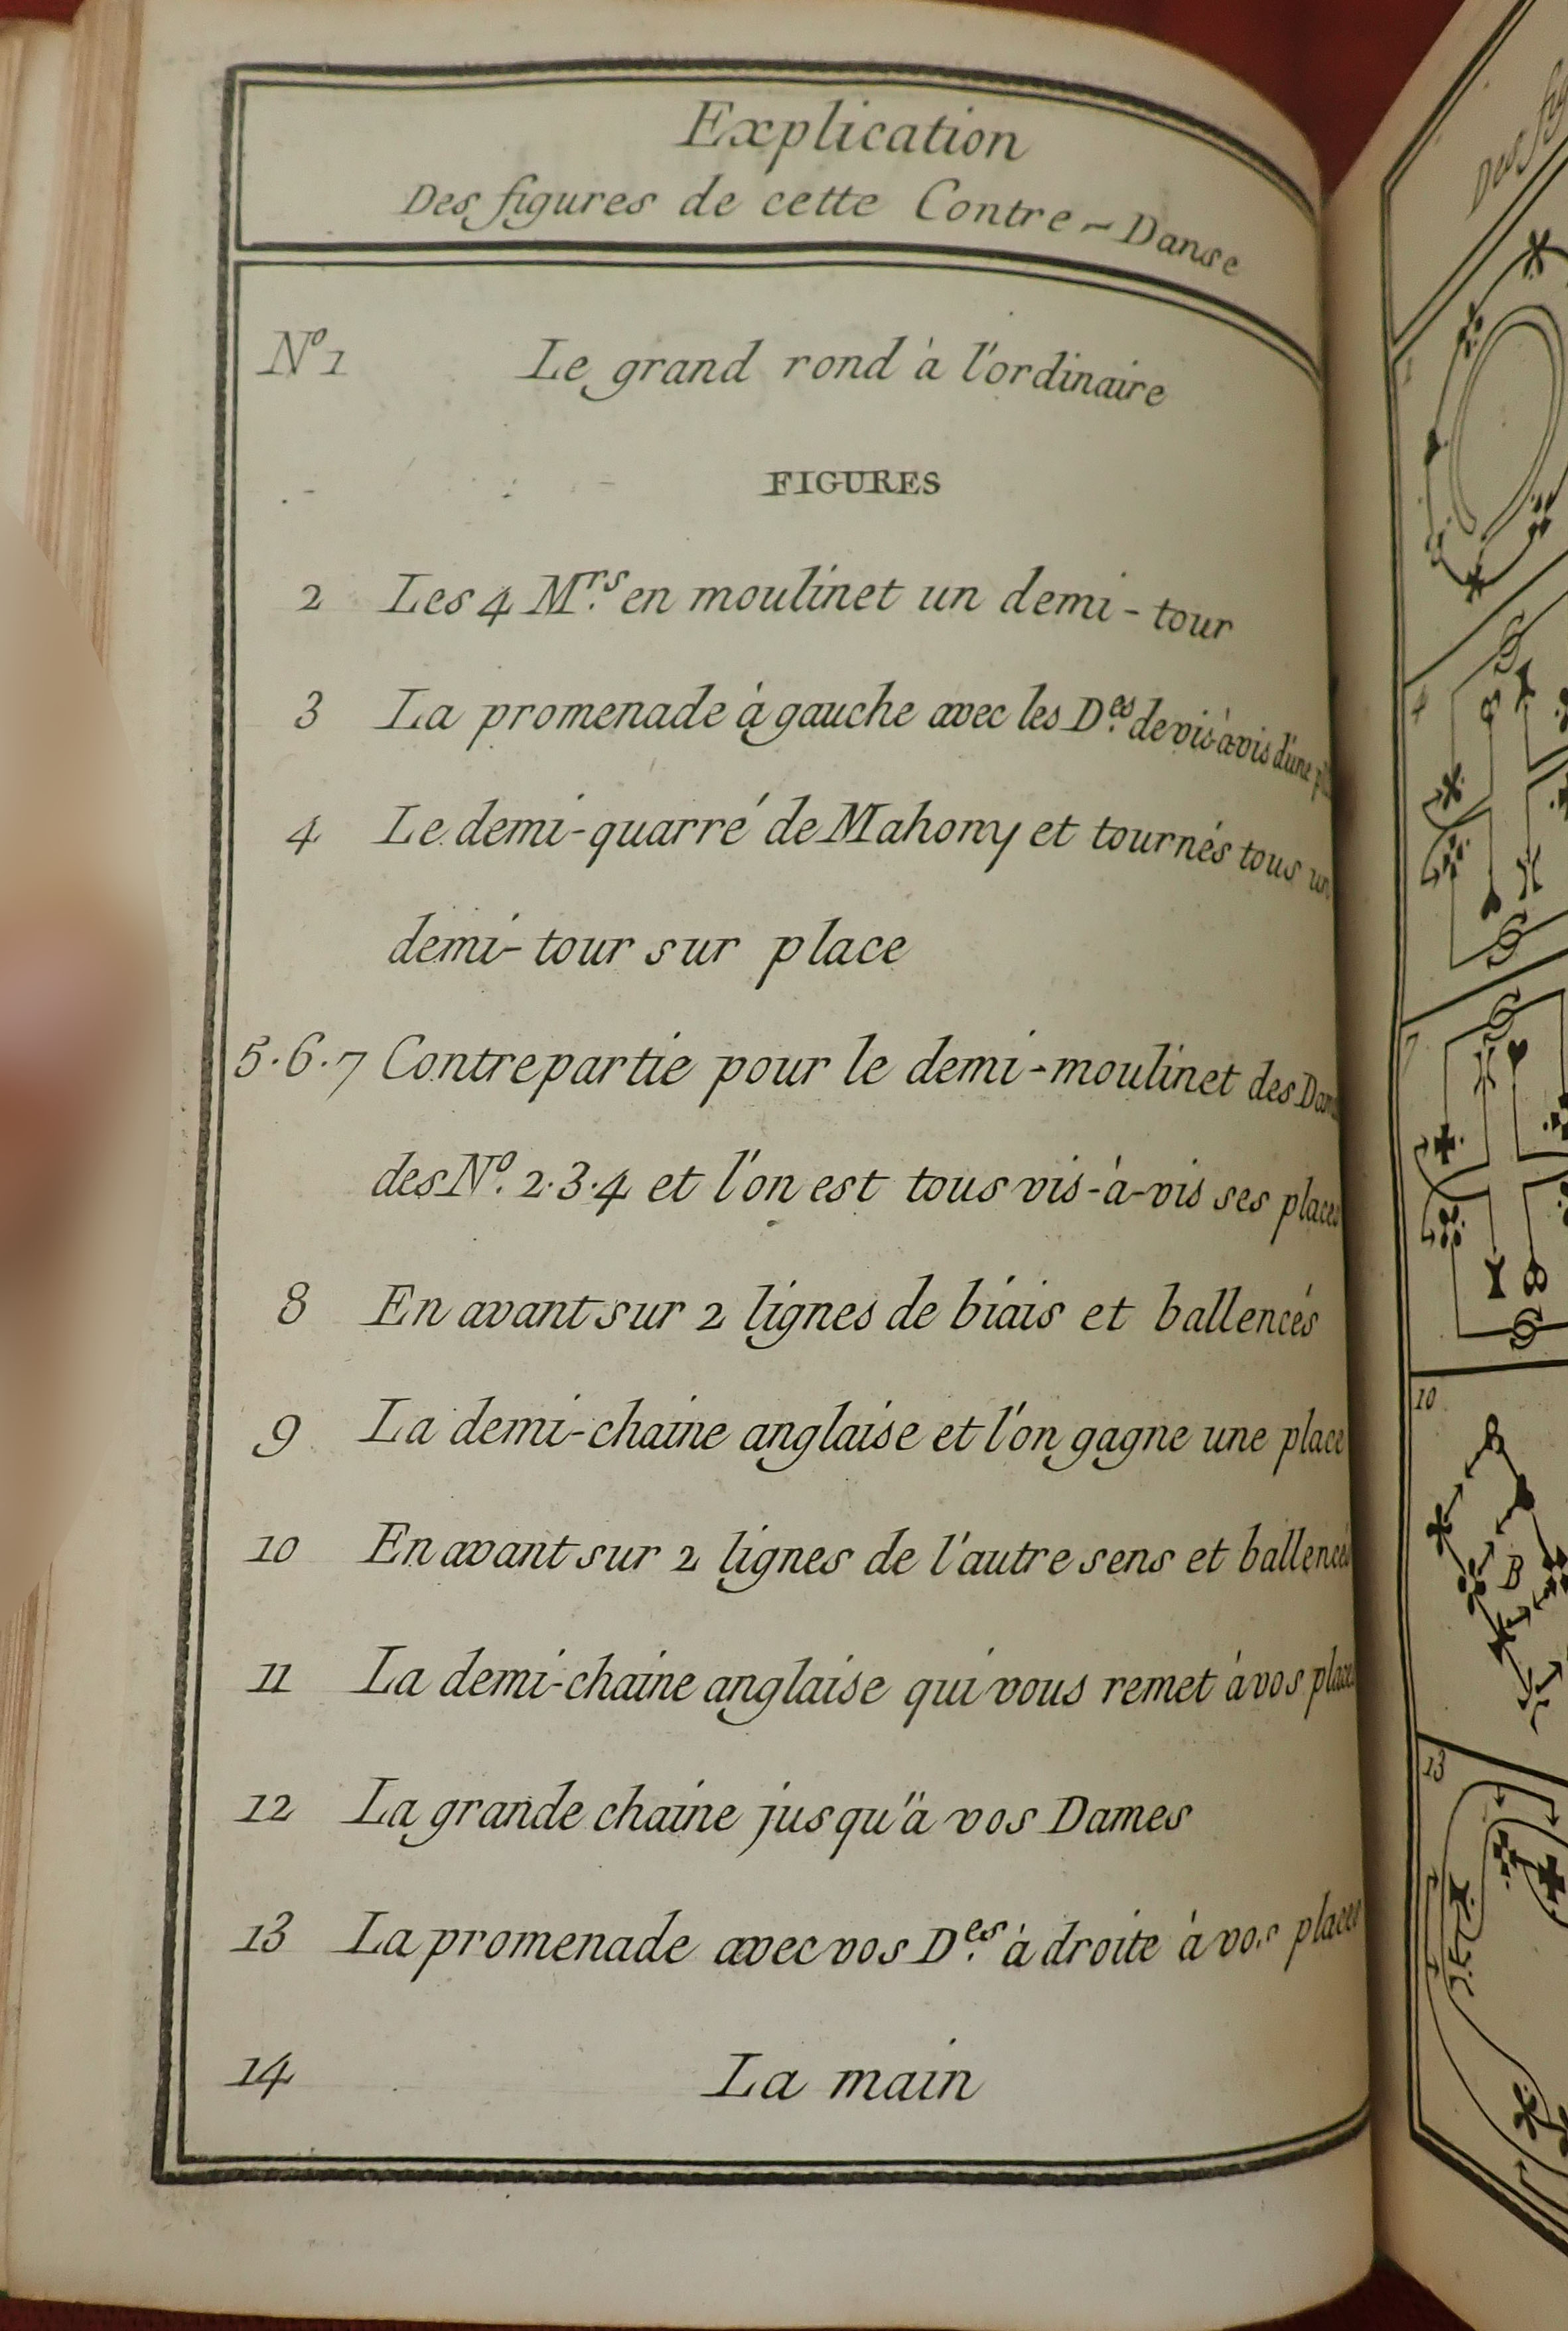 Explication
Des figures de cette Contre-Danse
Nº 1 Le grand rond à l'ordinaire
FIGURES
2 Les 4 M.rs en moulinet un demi-tour
3 La promenade à gauche avec les D.es de vis-à-vis d'une
4 Le demi-quarré de Mahony et tournés tous un
demi-tour sur place
5.6.7 Contrepartie pour le demi-moulinet des
des Nº. 2.3.4 et l'on est tous vis-à-vis ses places
8 En avant sur 2 lignes de biais et ballencés
9 La demi-chaine anglaise et l'on gagne une place
10 En avant sur 2 lignes de l'autre sens et ballencés
11 La demi-chaine anglaise qui vous remet à vos places
12 La grande chaine jusqu'à vos Dames
13 La promenade avec vos D.es à droite à vos places
14 La main
4
7
10
B
13